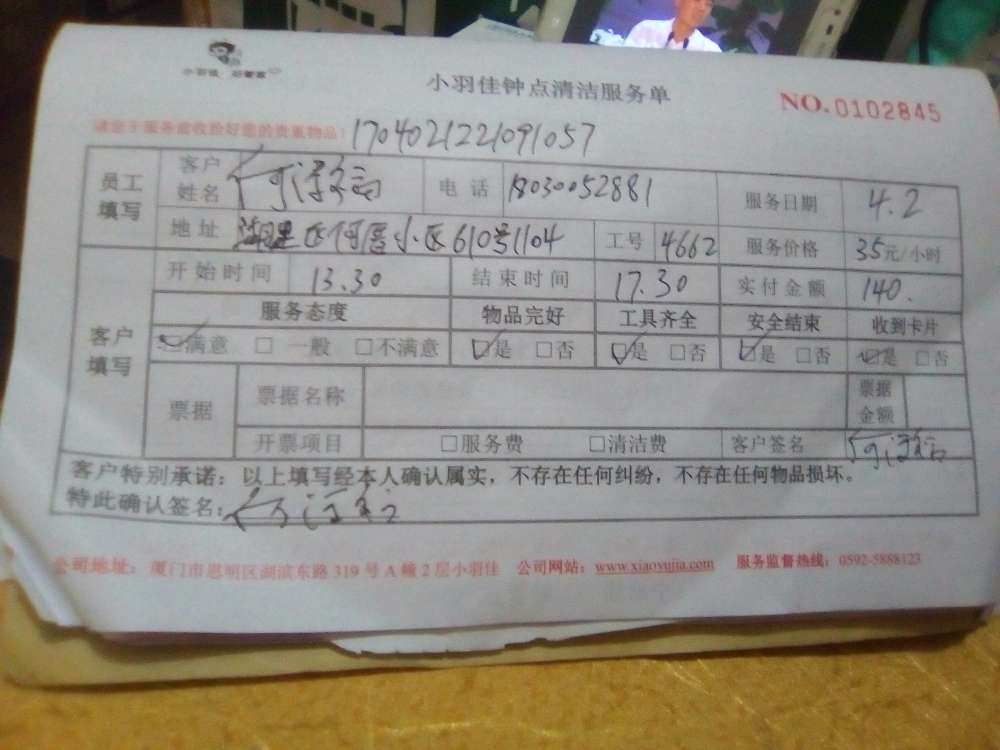 小羽佳 好管家
小羽佳钟点清洁服务单
NO.0102845
请您于服务前收拾好您的贵重物品! 1704021221091057
员工填写 客户姓名 何 电话 18030052881 服务日期 4.2
地址 湖里区何厝小区610号1104 工号 4662 服务价格 35元/小时
客户填写 开始时间 13.30 结束时间 17.30 实付金额 140.
服务态度 物品完好 工具齐全 安全结束 收到卡片
☑满意 □一般 □不满意 ☑是 □否 ☑是 □否 ☑是 □否 ☑是 □否
票据 票据名称 票据金额
开票项目 □服务费 □清洁费 客户签名 何
客户特别承诺:以上填写经本人确认属实,不存在任何纠纷,不存在任何物品损坏。
特此确认签名: 何
公司地址:厦门市思明区湖滨东路319号A幢2层小羽佳 公司网站:www.xiaoyujia.com 服务监督热线:0592-5888123